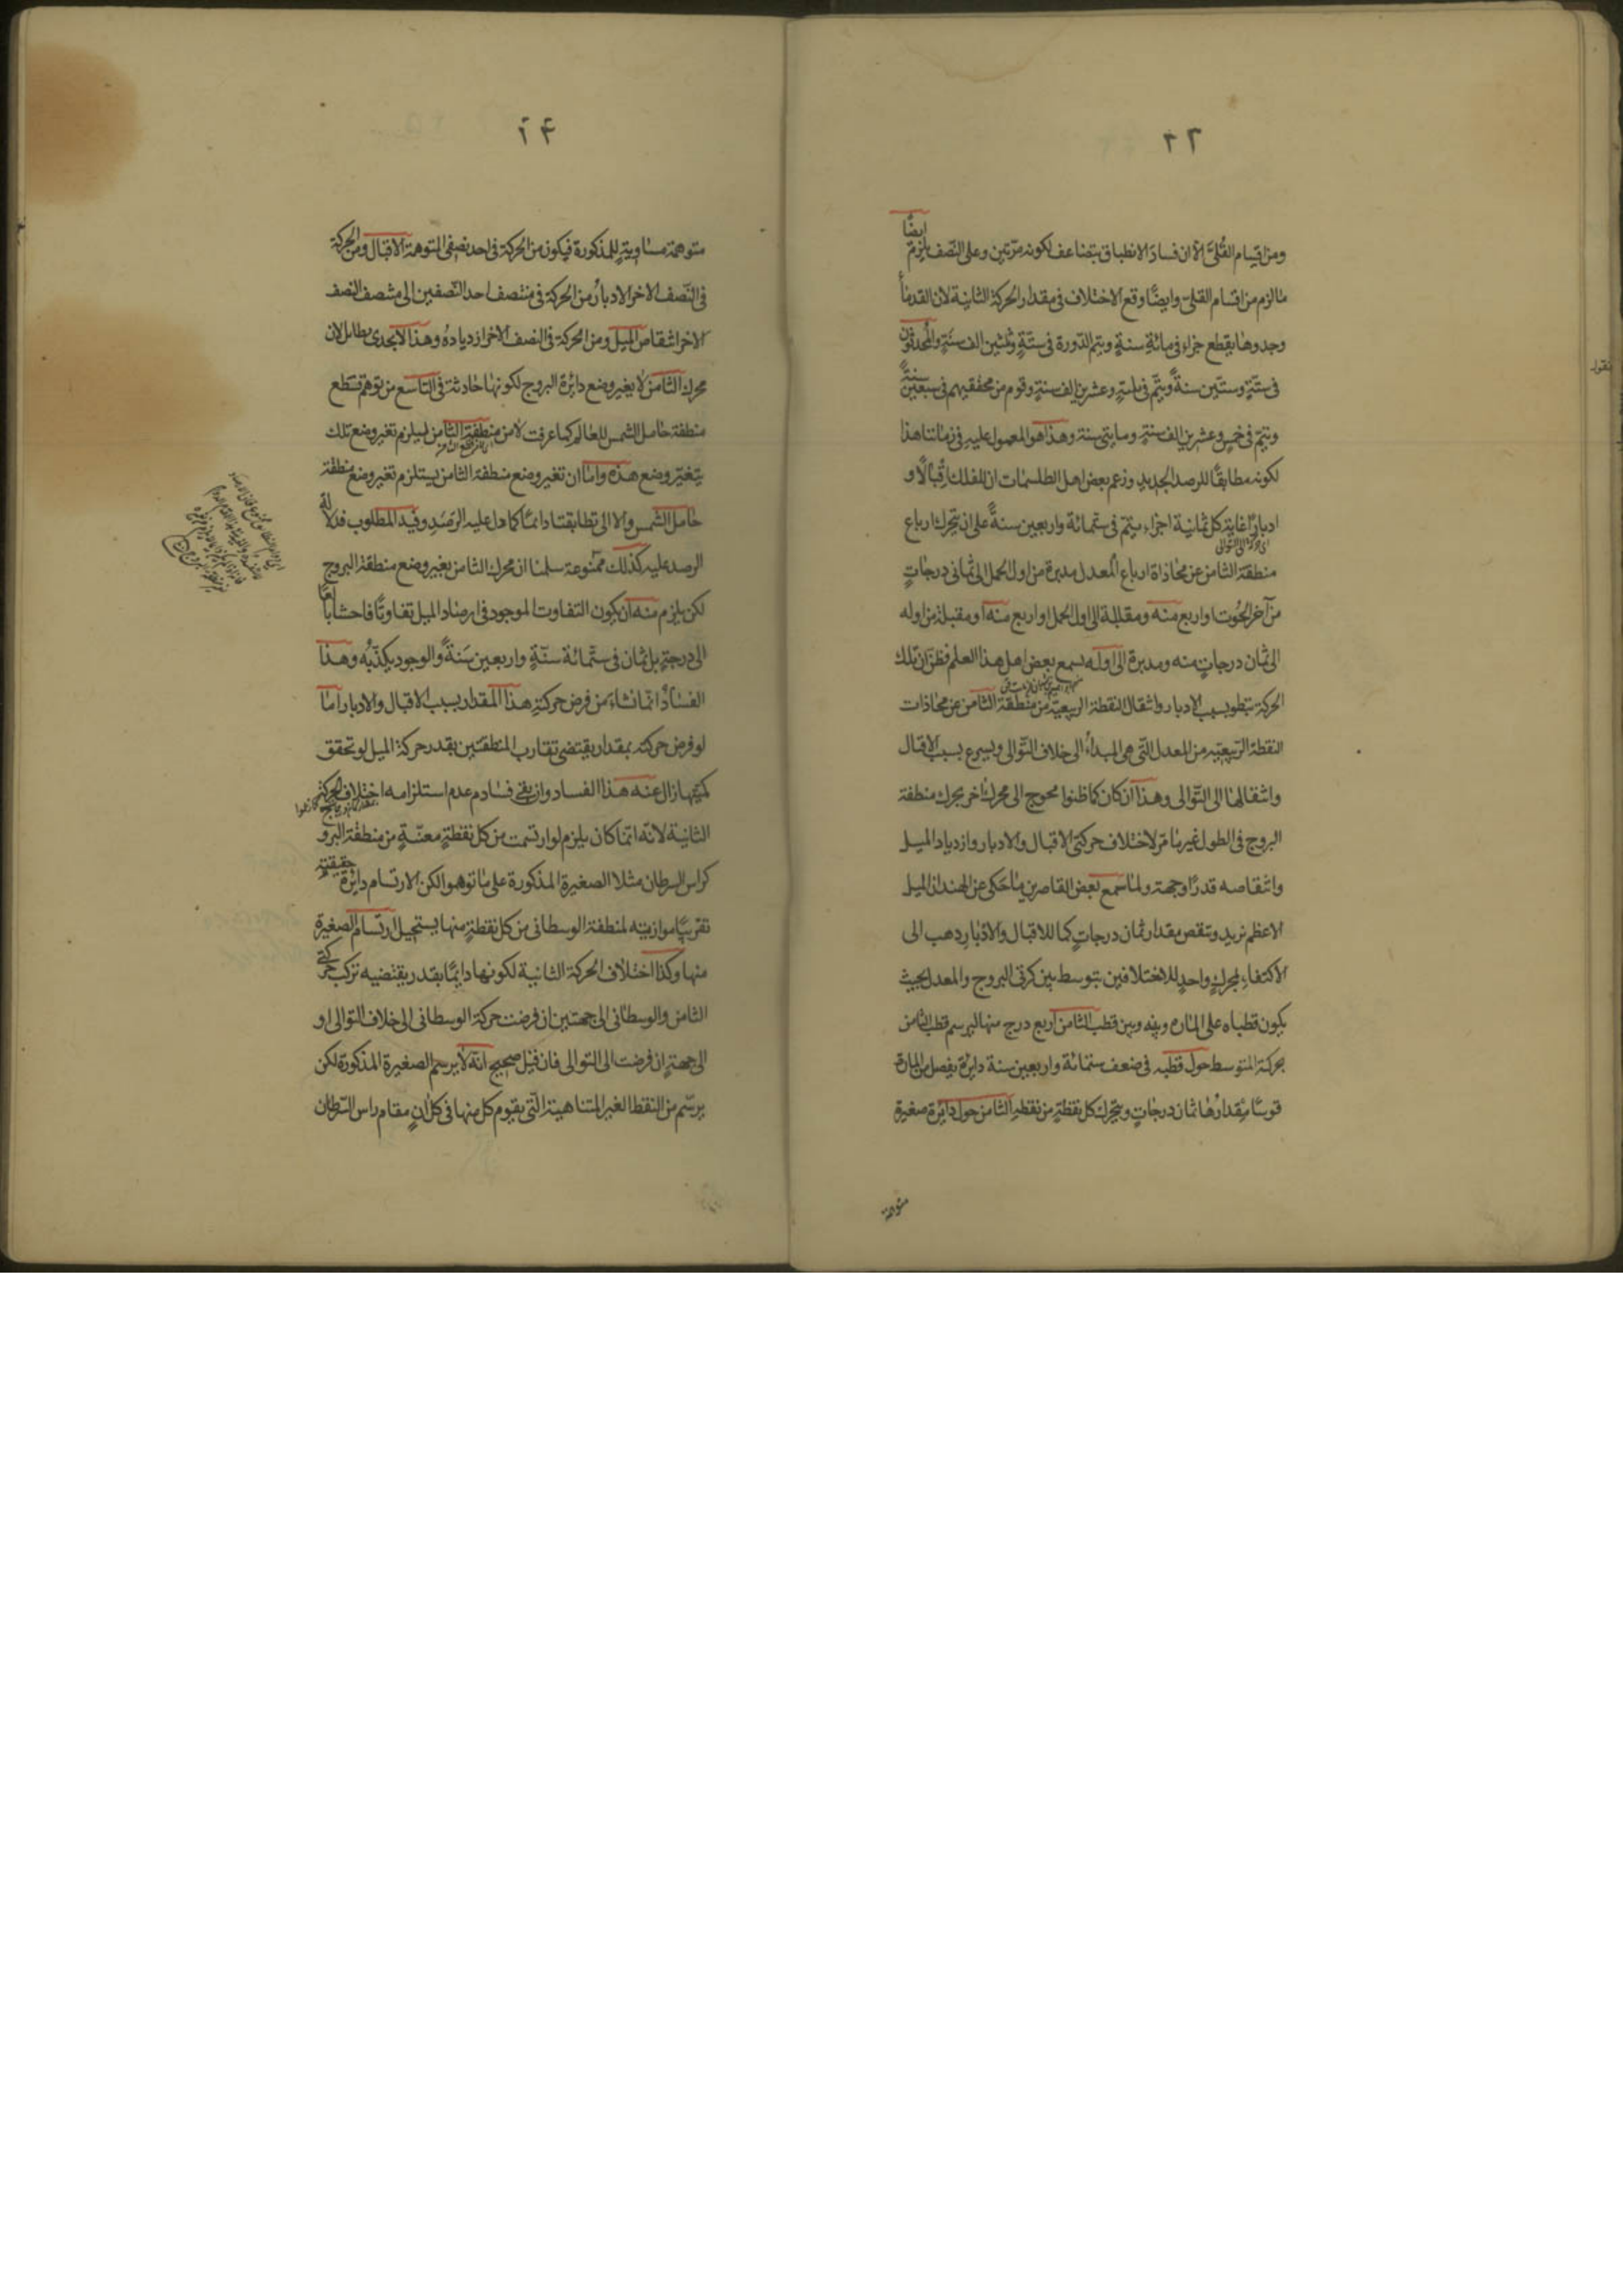 ٢٢
ايضًا
ومن اقسام القُلىّ الا ان فساد الانطباق يتضاعف لكونه مرّتين وعلى النّصف يلزم
ما لزم من اقسام القلىّ وايضًا وقع الاختلاف فى مقدار الحركة الثانية لان القدماأ
وجدوها يقطع جزاء فى مائة سنةٍ ويتم الدّورة فى ستّةٍ وثلثين الف سنةٍ والمحدثون
فى ستّةٍ وستّين سنةً ويتّم فى ثلثةٍ وعشرين الف سنةٍ وقوم من محققيهم فى سبعين سنةً
ويتم فى خمسٍ وعشرين الف سنةٍ ومايتى سنة وهذا هو المعمول عليه فى زماننا هذا
لكونه مطابقًا للرصد الجديد وزعم بعض اهل الطلسمات ان للفلك اقبالًا و
ادبارًا غاية كل ثمانية اجزاء يتم فى ستمائة واربعين سنةً على ان يتحرك ارباع
منطقة الثامن عن محاذاة ارباع المعدل مدبرة من اول الحمل الى ثمانى درجاتٍ
من آخر الحُوت اوربع منه ومقبلة الى اول الحمل اوربع منه او مقبلة من اوله
الى ثمان درجاتٍ منه ومدبرة الى اوله سمع بعض اهل هذا العلم فظن ان تلك
الحركة تبطو بسبب الادبار وانتقال النقطة الربيعيّة من منطقة الثامن عن محاذات
النقطة الربيعيّة من المعدل التى هى المبدأ الى خلاف التّوالى ويسرع بسبب الاقبال
وانتقالها الى التّوالى وهذا ان كان كما ظنوا محوج الى محرك اخر يحرك منطقة
البروج فى الطول غير ما مرّ لاختلاف حركتى الاقبال والادبار وازدياد الميل
وانتقاصه قدرًا وجهة ولما سمع بعض القاصرين ما حَكى عن الهند ان الميل
الاعظم يزيد وينقص مقدار ثمان درجاتٍ كما للاقبال والادبار ذهب الى
الاكتفاء بمحركٍ واحدٍ للاختلافين يتوسط بين كرتى البروج والمعدل بحيث
يكون قطباه على المارة وبينه وبين قطب الثامن اربع درج منها ليرسم قطب الثامن
بحركة المتوسط حول قطبه فى ضعف ستمائة واربعين سنة دايرة يفصل من المارة
قوسًا مقدارُها ثمان درجاتٍ ويتحرك كل نقطةٍ من نقطه الثامن حول دايرة صغيرة
متوهمة
٢٤
متوهمة مساويةٍ للمذكورة فيكون من الحركة فى احد نصفى المتوهمة الاقبال ومن الحركة
فى النّصف الاخر الادبارُ من الحركة فى منتصف احد النّصفين الى منتصف النصف
الاخر انتقاص الميل ومن الحركة فى النصف الاخر ازدياده وهذا لا يجدى بطائل لان
محرك الثامن لا يغير وضع دائرة البروج لكونها حادثة فى التاسع من توهم قطع
منطقة حامل الشمس للعالم كما عرفت لا من منطقة الثامن ليلزم تغير وضع تلك
يتغيّر وضع هذه واما ان تغير وضع منطقة الثامن يستلزم تغير وضع منطقة
حامل الشمس والا الى تطابقتا دائمًا كما دل عليه الرّصَد وفيه المطلوب فدلالة
الرصد عليه كذلك ممنوعة سلمنا ان محرك الثامن يغير وضع منطقة البروج
لكن يلزم منه ان يكون التفاوت الموجود فى ارصاد الميل تفاوتًا فاحشا بالغًا
الى درجةٍ بل ثمان فى ستّمائة سنّةٍ واربعين سَنةً والوجود يكذّبُه وهذا
الفسَادُ انّما نشاء من فرض حركةِ هذا المقدار بسبب الاقبال والادبار امّا
لو فرض حركته بمقدار يقتضى تقارب المنطقتين بقدر حركة الميل لو تحقق
كميّتها زال عنه هذا الفساد وان بقى فساد عدم استلزامه اختلاف الحركة
الثانية لانّه انّما كان يلزم لو ارتسمت من كل نقطةٍ معنيّةٍ من منطقة البرو
كراس السرطان مثلا الصغيرة المذكورة على ما توهموا لكن الارتسام دايْرة حقيقيّة
تقريبًا موازيته لمنطقة الوسطانى من كل نقطةٍ منها يستحيل ارتسَام الصغيرة
منها وكذا اختلاف الحركة الثانية لكونها دايمًا بقدر يقتضيه تركب حركتى
الثامن والوسطانى الى جهتين ان فرضت حركة الوسطانى الى خلاف التوالى او
الى جهةٍ ان فرضت الى التوالى فان قيل صحيح انّه لا يرسم الصغيرة المذكورة لكن
يرسّم من النقط الغير المتناهية التى يقوم كل منها فى كل انٍ مقام راس السّرطان